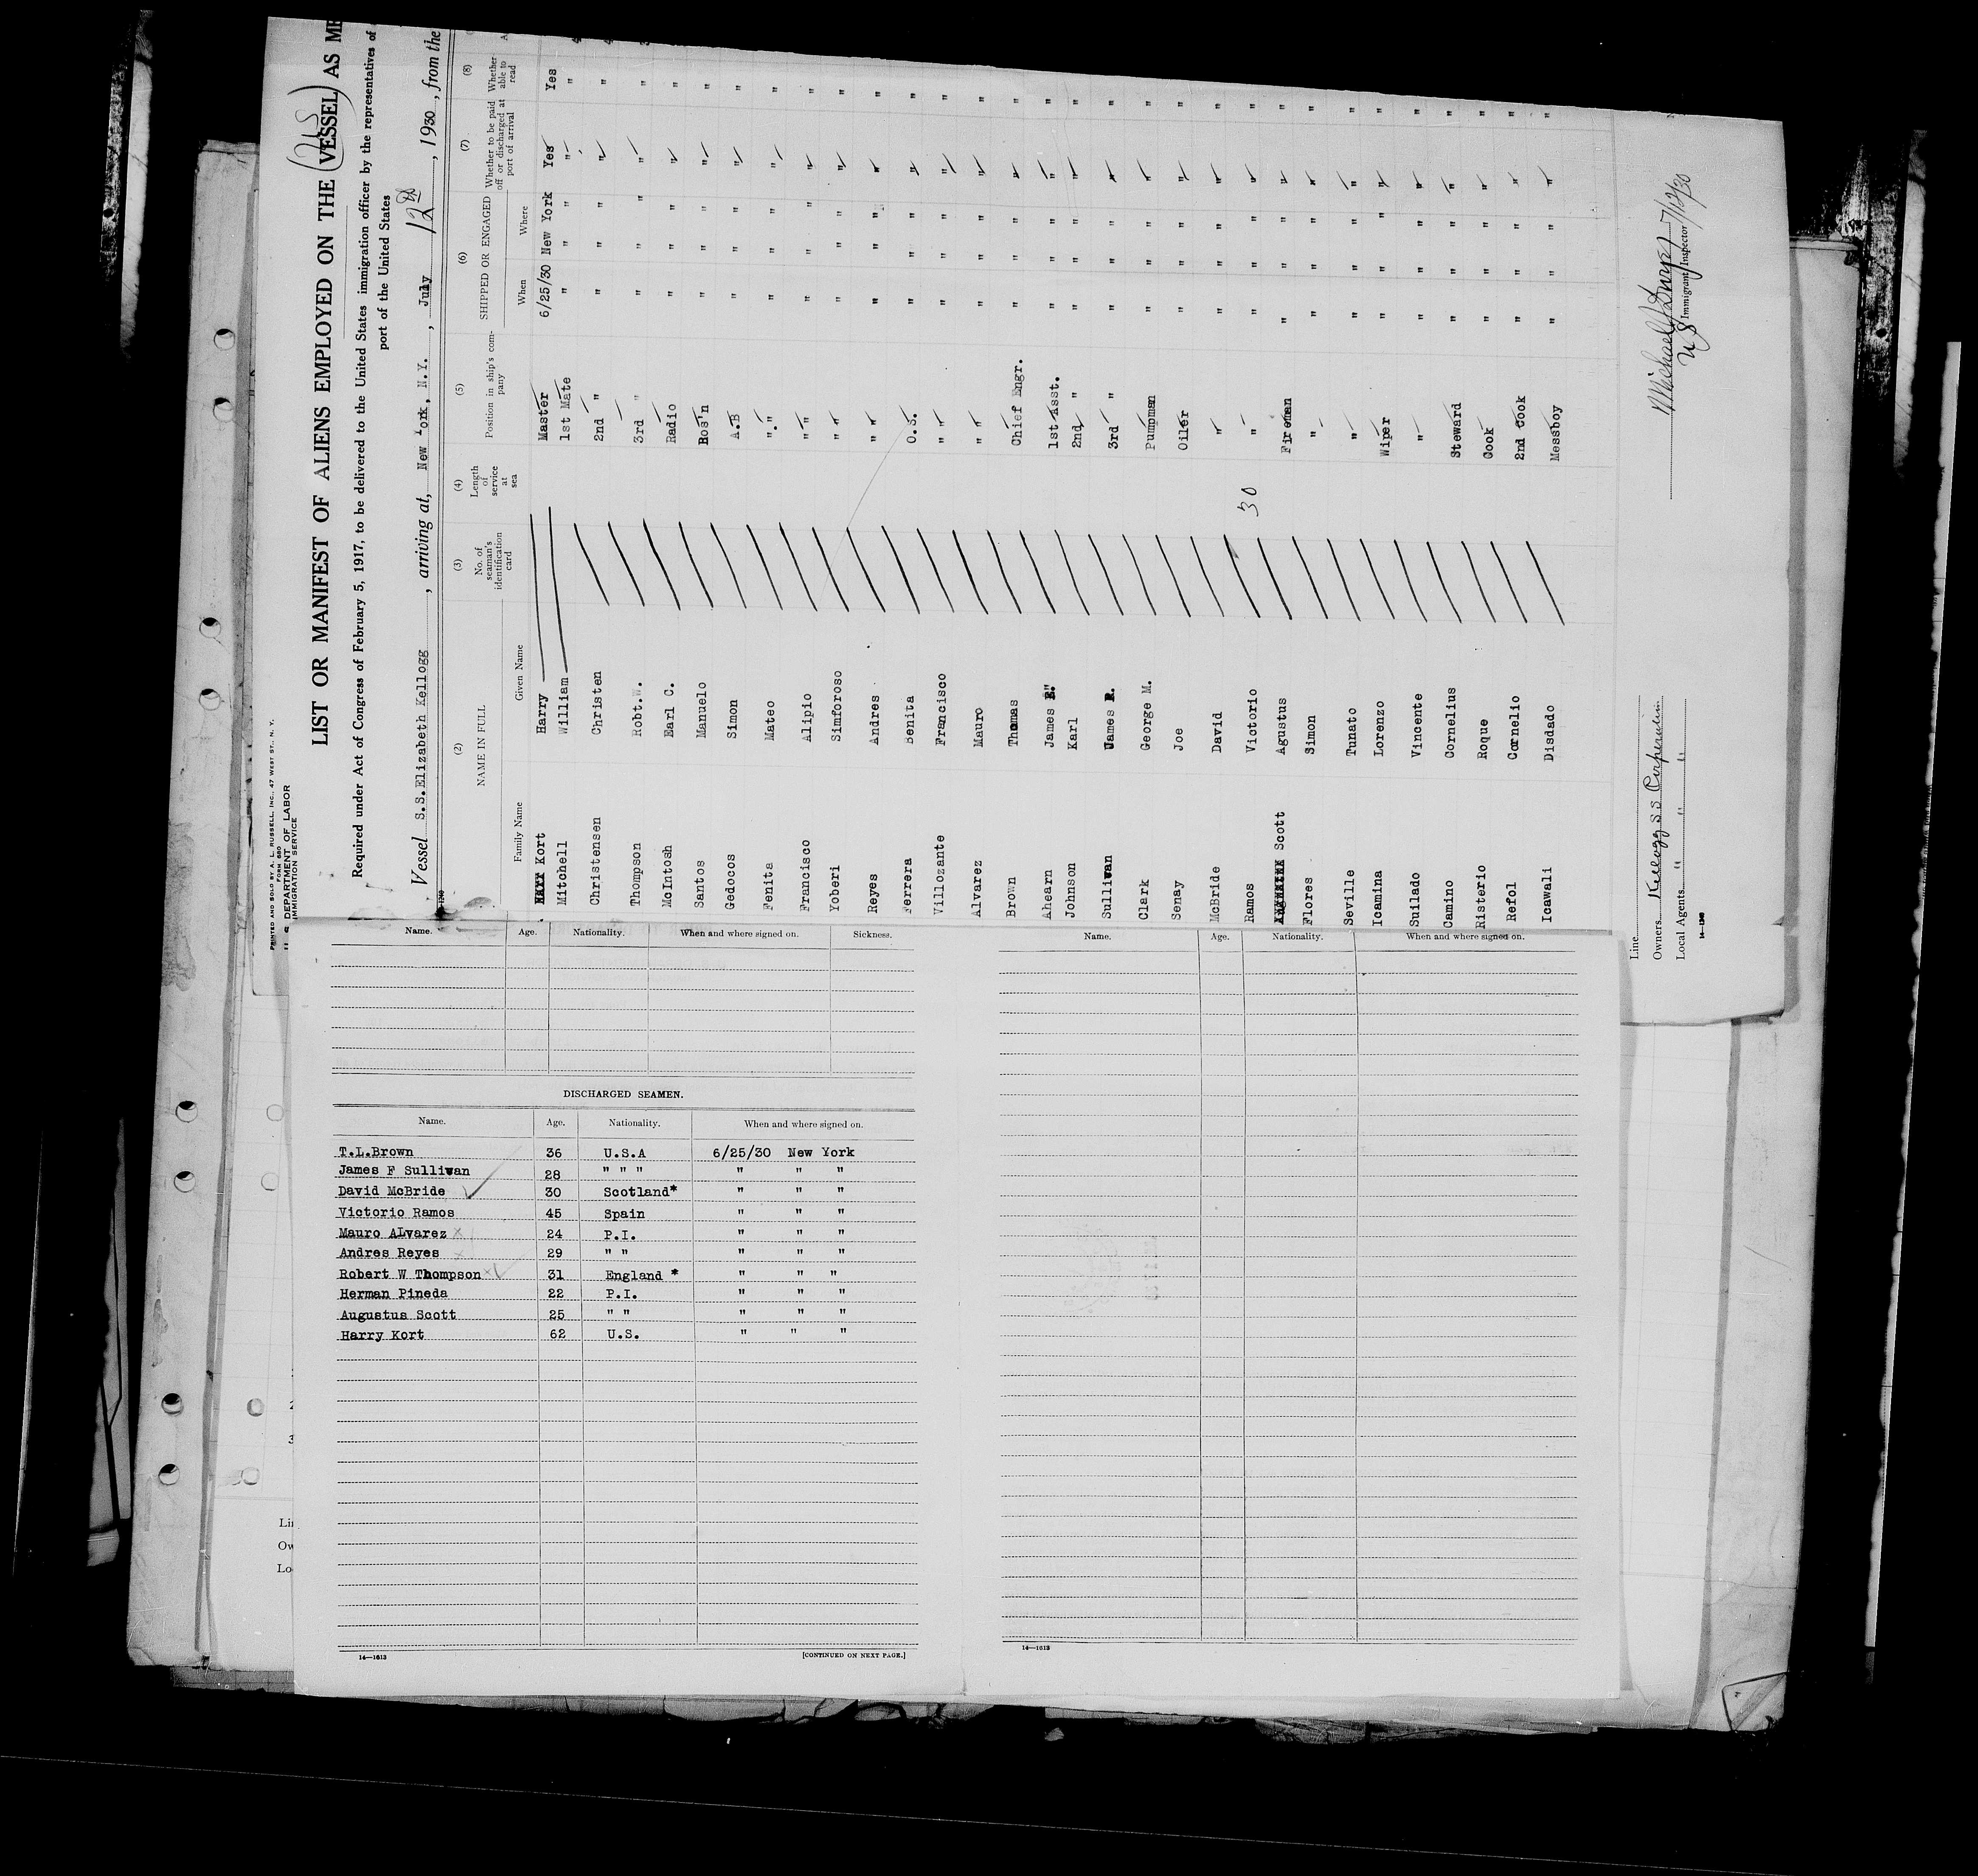 PRINTED AND SOLD BY A. L. RUSSELL, INC., 47 WEST ST., N. Y.
FORM 680
U. S. DEPARTMENT OF LABOR
IMMIGRATION SERVICE
LIST OR MANIFEST OF ALIENS EMPLOYED ON THE VESSEL AS ME
Required under Act of Congress of February 5, 1917, to be delivered to the United States immigration officer by the representatives of
port of the United States
Vessel S.S.Elizabeth Kellogg , arriving at, New York, N.Y. , July 12th , 1930 , from the
(2) (3) (4) (5) (6) (7) (8)
NAME IN FULL No. of seaman's identification card Length of service at sea Position in ship's company SHIPPED OR ENGAGED Whether to be paid off or discharged at port of arrival Whether able to read
Family Name Given Name When Where
Kort Harry Master 6/25/30 New York Yes Yes
Mitchell William 1st Mate " " " " "
Christensen Christen 2nd " " " " " "
Thompson Robt.W. 3rd " " " " " "
McIntosh Earl C. Radio " " " " "
Santos Manuelo Bos'n " " " " "
Gedocos Simon A.B " " " " "
Fenita Mateo "." " " " " "
Francisco Alipio " " " " " " "
Yoberi Simforoso " " " " " " "
Reyes Andres " " " " " " "
Ferrera Benita O.S. " " " " "
Villozante Francisco " " " " " " "
Alvarez Mauro " " " " " " "
Brown Thomas Chief Engr. " " " " "
Ahearn James 1st Asst. " " " " "
Johnson Karl 2nd " " " " " "
Sullivan James 3rd " " " " " "
Clark George M. Pumpman " " " " "
Senay Joe Oiler " " " " "
McBride David " " " " " "
Ramos Victorio 30 " " " " " "
Scott Agustus Fireman " " " " "
Flores Simon " " " " " "
Seville Tunato " " " " " "
Icamina Lorenzo Wiper " " " " "
Suilado Vincente " " " " " "
Camino Cornelius Steward " " " " "
Risterio Roque Cook " " " " "
Refol Cornelio 2nd Cook " " " " "
Icawali Disdado Messboy " " " " "
Line
Owners Kellogg S S Corporation
Local Agents " " "
14—1240
Michael 7/12/30
U S Immigrant Inspector
Name. Age. Nationality. When and where signed on. Sickness.
DISCHARGED SEAMEN.
Name. Age. Nationality. When and where signed on.
T.L.Brown 36 U.S.A 6/25/30 New York
James F Sullivan 28 " " " " " "
David McBride 30 Scotland* " " "
Victorio Ramos 45 Spain " " "
Mauro ALvarez 24 P.I. " " "
Andres Reyes 29 " " " " "
Robert W Thompson 31 England * " " "
Herman Pineda 22 P.I. " " "
Augustus Scott 25 " " " " "
Harry Kort 62 U.S. " " "
14—1613 [CONTINUED ON NEXT PAGE.]
Name. Age. Nationality. When and where signed on.
14—1613